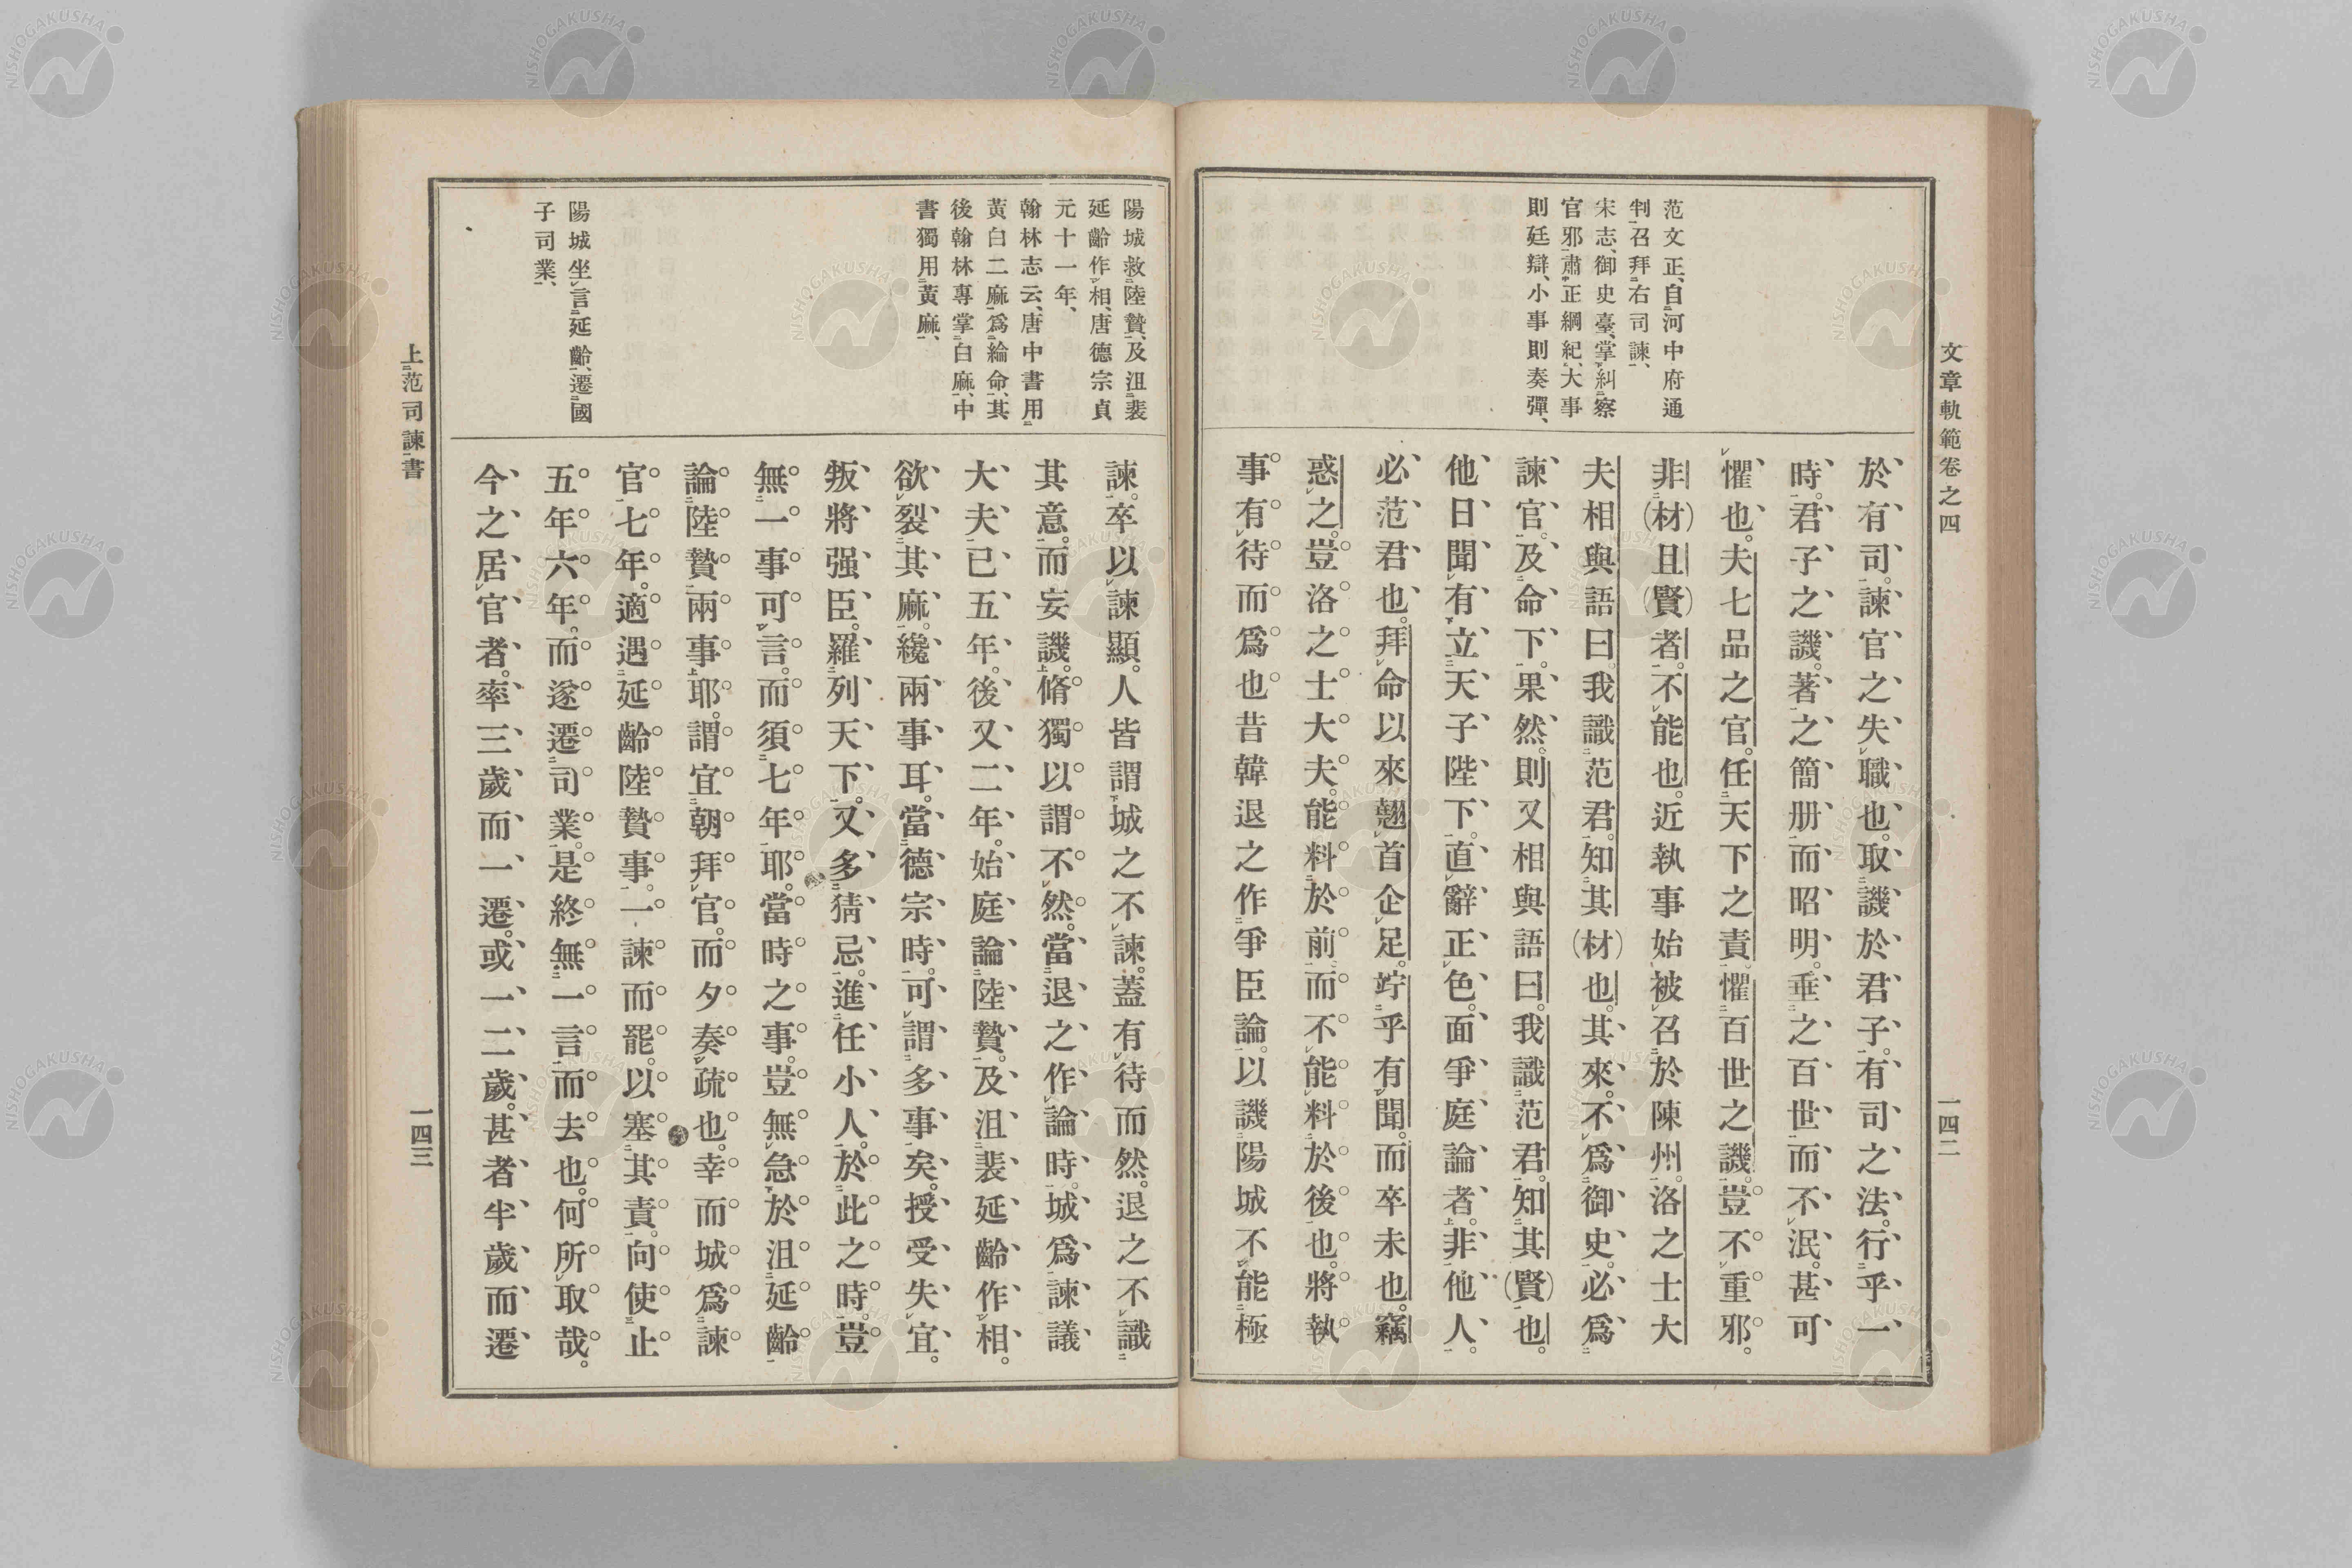 文章軌範卷之四
一四二
范文正、自河中府通
判召拜右司諫、
宋志、御史臺、掌糾察
官邪肅正綱紀、大事
則廷辯、小事則奏彈、
於有司。諫官之失職也。取譏於君子。有司之法。行乎一
時。君子之譏。著之簡册而昭明。垂之百世而不泯。甚可
懼也。夫七品之官。任天下之責。懼百世之譏。豈不重邪。
非(材)且(賢)者。不能也。近執事始被召於陳州。洛之士大
夫相與語曰。我識范君。知其(材)也。其來。不爲御史。必爲
諫官。及命下。果然。則又相與語曰。我識范君。知其(賢)也。
他日聞有立天子陛下。直辭正色。面爭庭論者。非他人。
必范君也。拜命以來。翹首企足。竚乎有聞。而卒未也。竊
惑之。豈洛之士大夫。能料於前。而不能料於後也。將執
事有待而爲也昔韓退之作爭臣論。以譏陽城不能極
陽城救陸贄、及沮裴
延齡作相、唐德宗貞
元十一年、
翰林志云、唐中書用
黃白二麻爲綸命、其
後翰林專掌白麻、中
書獨用黃麻、
陽城坐言延齡、遷國
子司業、
諫。卒以諫顯。人皆謂城之不諫。蓋有待而然。退之不識
其意。而妄譏。脩獨以謂不然。當退之作論時。城爲諫議
大夫已五年。後又二年。始庭論陸贄。及沮裴延齡作相。
欲裂其麻。纔兩事耳。當德宗時。可謂多事矣。授受失宜。
叛將强臣。羅列天下。又多猜忌。進任小人。於此之時。豈
無一事可言。而須七年耶。當時之事。豈無急於沮延齡
論陸贄兩事耶。謂宜朝拜官。而夕奏疏也。幸而城爲諫
官七年。適遇延齡陸贄事。一諫而罷。以塞其責。向使止
五年六年。而遂遷司業。是終無一言而去也。何所取哉。
今之居官者。率三歲而一遷。或一二歲。甚者半歲而遷
上范司諫書
一四三